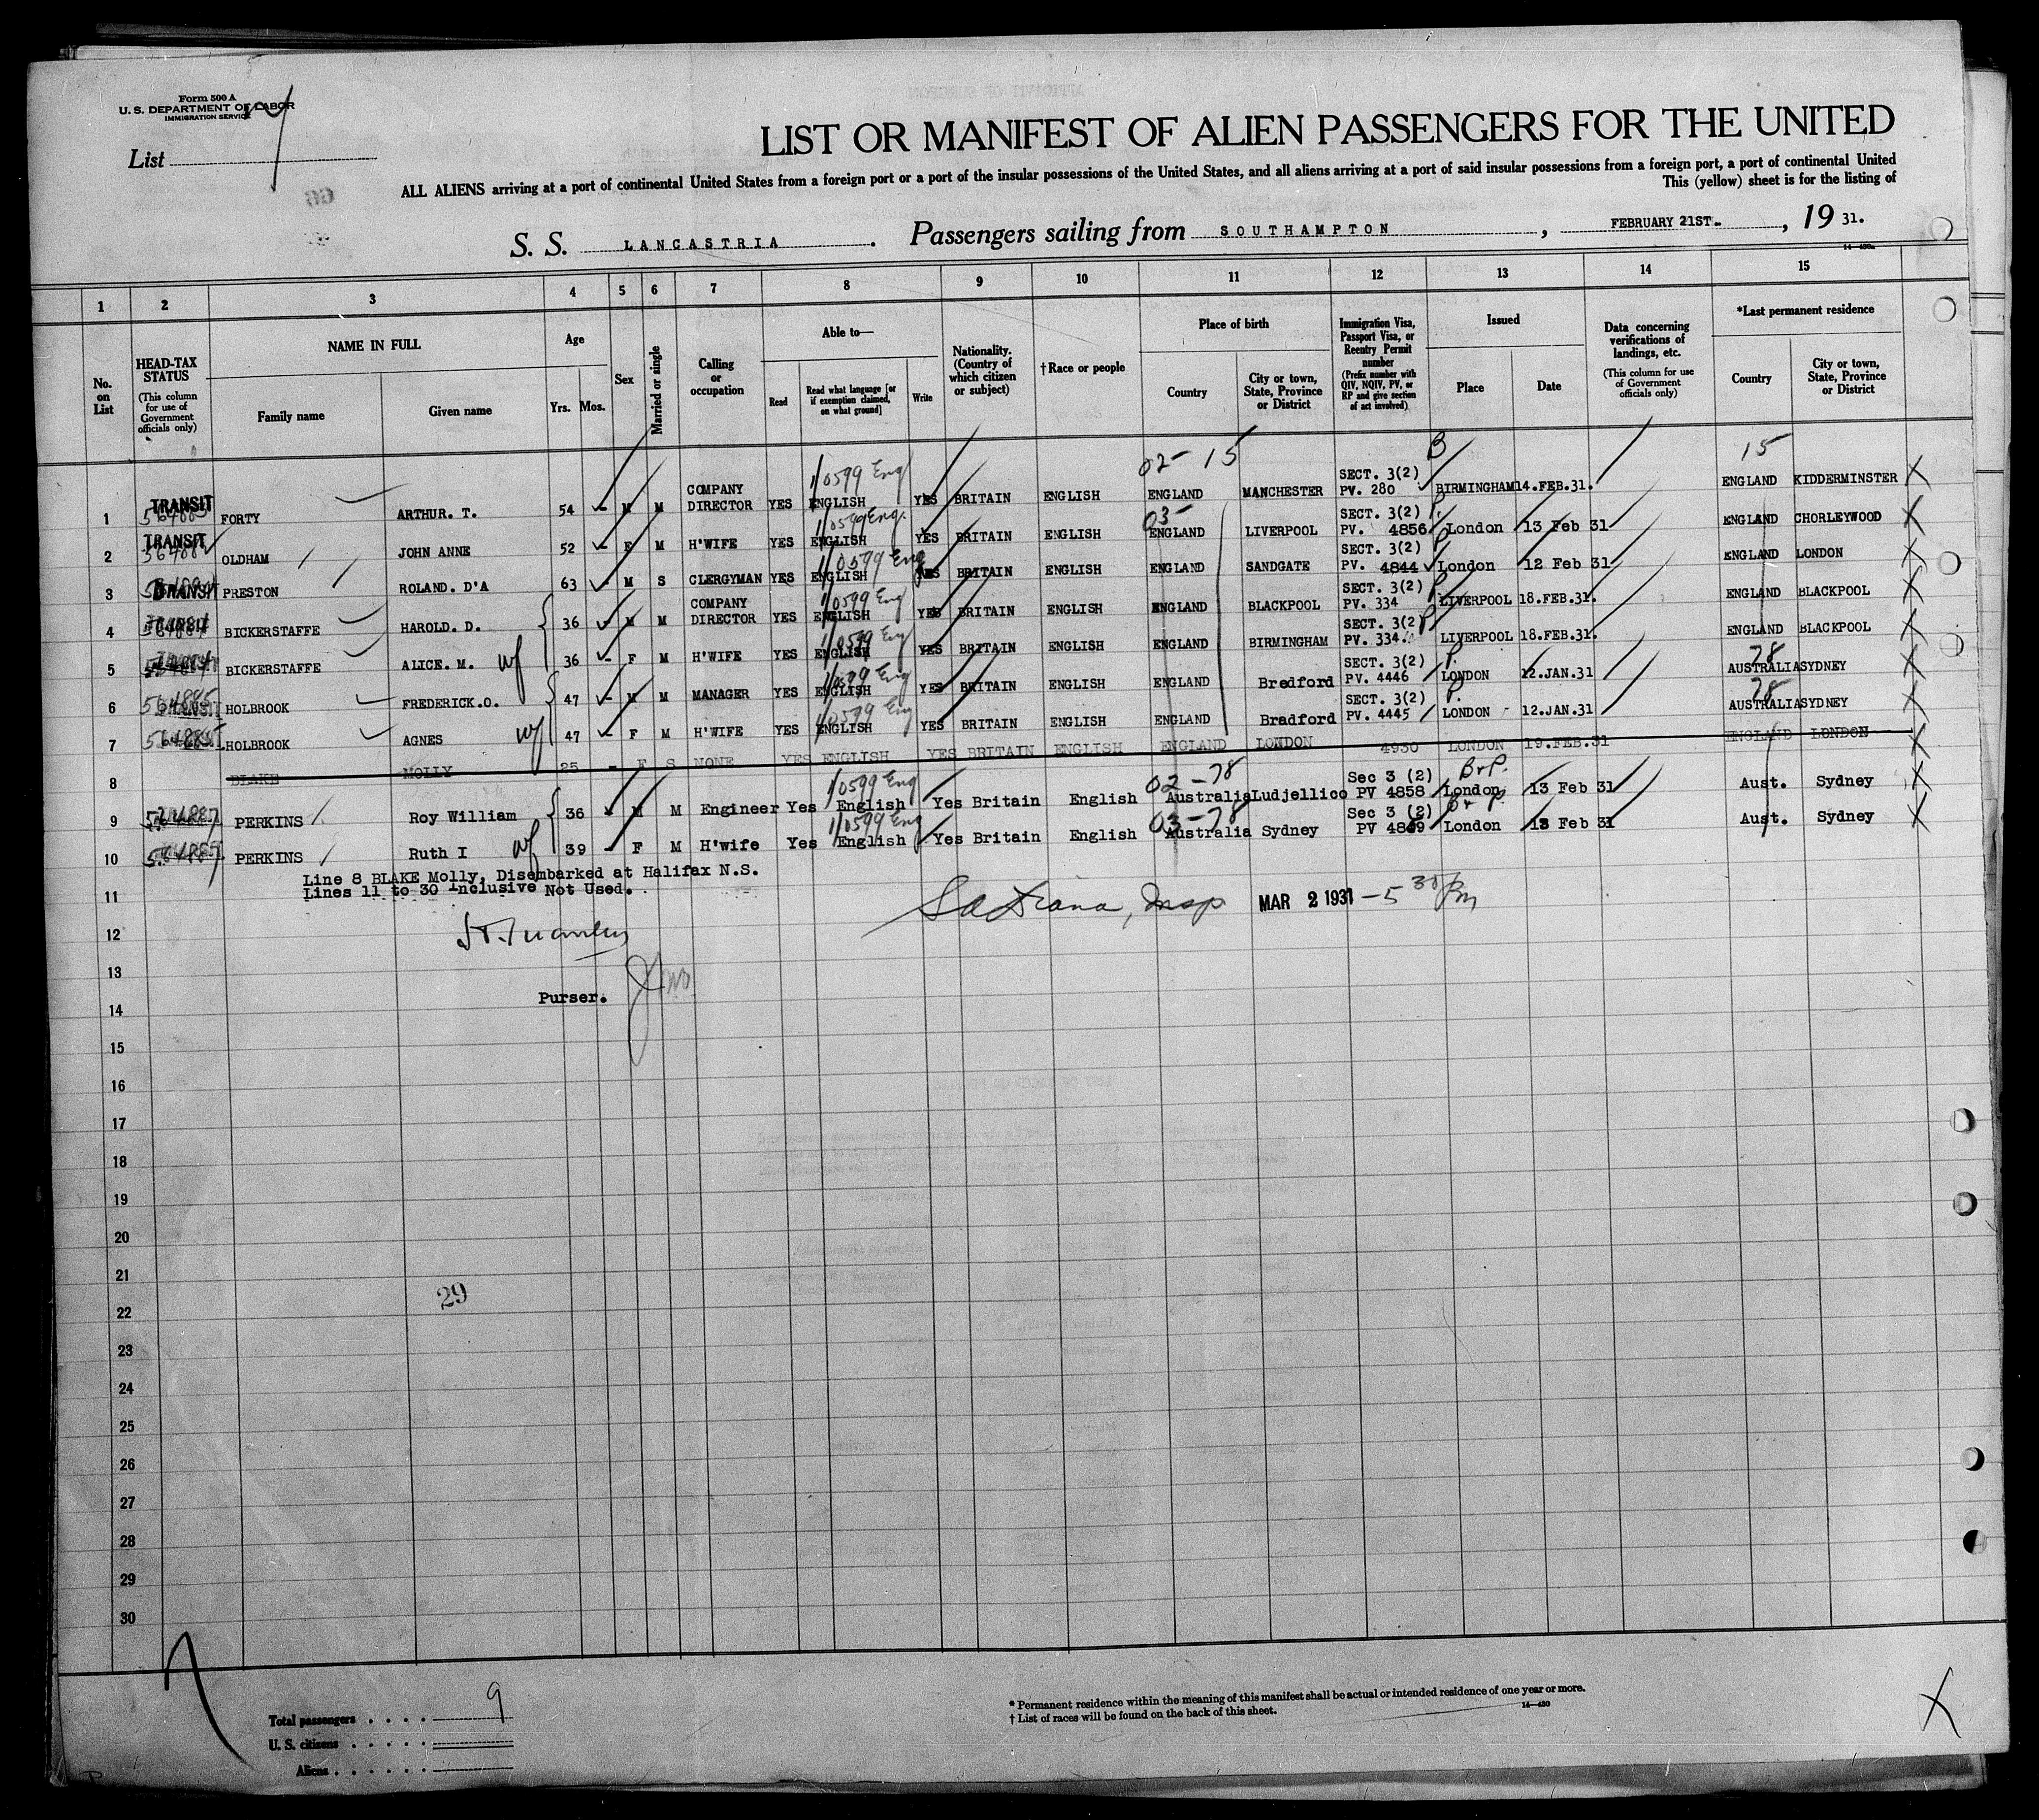 Form 500 A
U. S. DEPARTMENT OF LABOR
IMMIGRATION SERVICE
List
LIST OR MANIFEST OF ALIEN PASSENGERS FOR THE UNITED
ALL ALIENS arriving at a port of continental United States from a foreign port or a port of the insular possessions of the United States, and all aliens arriving at a port of said insular possessions from a foreign port, a port of continental United
This (yellow) sheet is for the listing of
S. S. LANCASTRIA. Passengers sailing from SOUTHAMPTON, FEBRUARY 21ST., 19 31.
14—430a
1 2 3 4 5 6 7 8 9 10 11 12 13 14 15
No. on List
HEAD-TAX STATUS
(This column for use of Government officials only)
NAME IN FULL
Family name
Given name
Age
Yrs. Mos.
Sex
Married or single
Calling or occupation
Able to—
Read
Read what language [or if exemption claimed, on what ground]
Write
Nationality. (Country of which citizen or subject)
†Race or people
Place of birth
Country
City or town, State, Province or District
Immigration Visa, Passport Visa, or Reentry Permit number
(Prefix number with QIV, NQIV, PV, or RP and give section of act involved)
Issued
Place
Date
Data concerning verifications of landings, etc.
(This column for use of Government officials only)
*Last permanent residence
Country
City or town, State, Province or District
02-15 B 15
1 TRANSIT FORTY ARTHUR. T. 54 - M M COMPANY DIRECTOR YES ENGLISH 10599 Eng YES BRITAIN ENGLISH ENGLAND MANCHESTER SECT. 3(2) PV. 280 BIRMINGHAM 14.FEB.31. ENGLAND KIDDERMINSTER X
2 TRANSIT OLDHAM JOHN ANNE 52 - F M H'WIFE YES ENGLISH 10599 Eng. YES BRITAIN ENGLISH 03- ENGLAND LIVERPOOL SECT. 3(2) PV. 4856 P. London 13 Feb 31 ENGLAND CHORLEYWOOD X
3 TRANSIT PRESTON ROLAND. D'A 63 M S CLERGYMAN YES ENGLISH 10599 Eng YES BRITAIN ENGLISH ENGLAND SANDGATE SECT. 3(2) PV. 4844 P London 12 Feb 31 ENGLAND LONDON X
4 TRANSIT BICKERSTAFFE HAROLD. D. 36 - M M COMPANY DIRECTOR YES ENGLISH 10599 Eng YES BRITAIN ENGLISH ENGLAND BLACKPOOL SECT. 3(2) PV. 334 P. LIVERPOOL 18.FEB.31. ENGLAND BLACKPOOL X
5 BICKERSTAFFE ALICE. M. wf 36 - F M H'WIFE YES ENGLISH 10599 Eng YES BRITAIN ENGLISH ENGLAND BIRMINGHAM SECT. 3(2 PV. 334. P LIVERPOOL 18.FEB.31. ENGLAND BLACKPOOL X
6 HOLBROOK FREDERICK.O. 47 - M M MANAGER YES ENGLISH 10599 Eng YES BRITAIN ENGLISH ENGLAND Bredford SECT. 3(2) PV. 4446 P. LONDON 12.JAN.31 78 AUSTRALIA SYDNEY X
7 HOLBROOK AGNES wf 47 - F M H'WIFE YES ENGLISH 10599 Eng YES BRITAIN ENGLISH ENGLAND Bradford SECT. 3(2) PV. 4445 P. LONDON - 12.JAN.31 78 AUSTRALIA SYDNEY X
8 BLAKE MOLLY 25 - F S NONE YES ENGLISH YES BRITAIN ENGLISH ENGLAND LONDON 4930 LONDON 19.FEB.31 ENGLAND LONDON X
9 PERKINS Roy William 36 - M M Engineer Yes English 10599 Eng Yes Britain English 02-78 Australia Ludjellico Sec 3 (2) PV 4858 B+P. London 13 Feb 31 Aust. Sydney X
10 PERKINS Ruth I wf 39 - F M H'wife Yes English 10599 Eng Yes Britain English 03-78 Australia Sydney Sec 3 (2) PV 4869 B+P. London 13 Feb 31 Aust. Sydney X
Line 8 BLAKE Molly, Disembarked at Halifax N.S.
11 Lines 11 to 30 Inclusive Not Used.
Insp MAR 2 1931 - 5 30 Pm
12
13
Purser.
14
15
16
17
18
19
20
21
29
22
23
24
25
26
27
28
29
30
Total passengers . . . . 9
U. S. citizens . . . . .
Aliens . . . . . .
* Permanent residence within the meaning of this manifest shall be actual or intended residence of one year or more.
† List of races will be found on the back of this sheet.
14—430
X